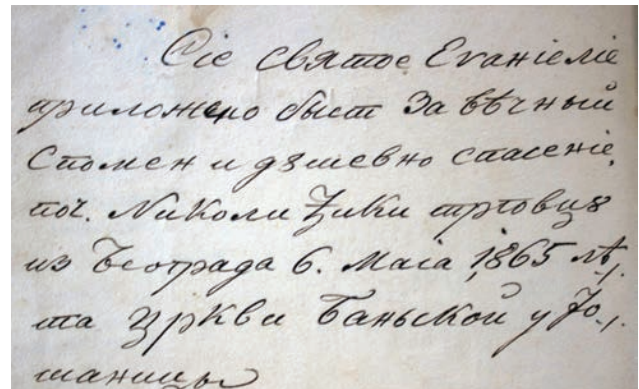 Сіе святое Еваніеліе
приложено быст за вѣчный
Спомен и дꙋшевно спасеніе,
поч. Николи Џики трговцꙋ
из Београда 6. Маіа 1865 лѣ-
та цркви Баньской у Јо-
шаницы